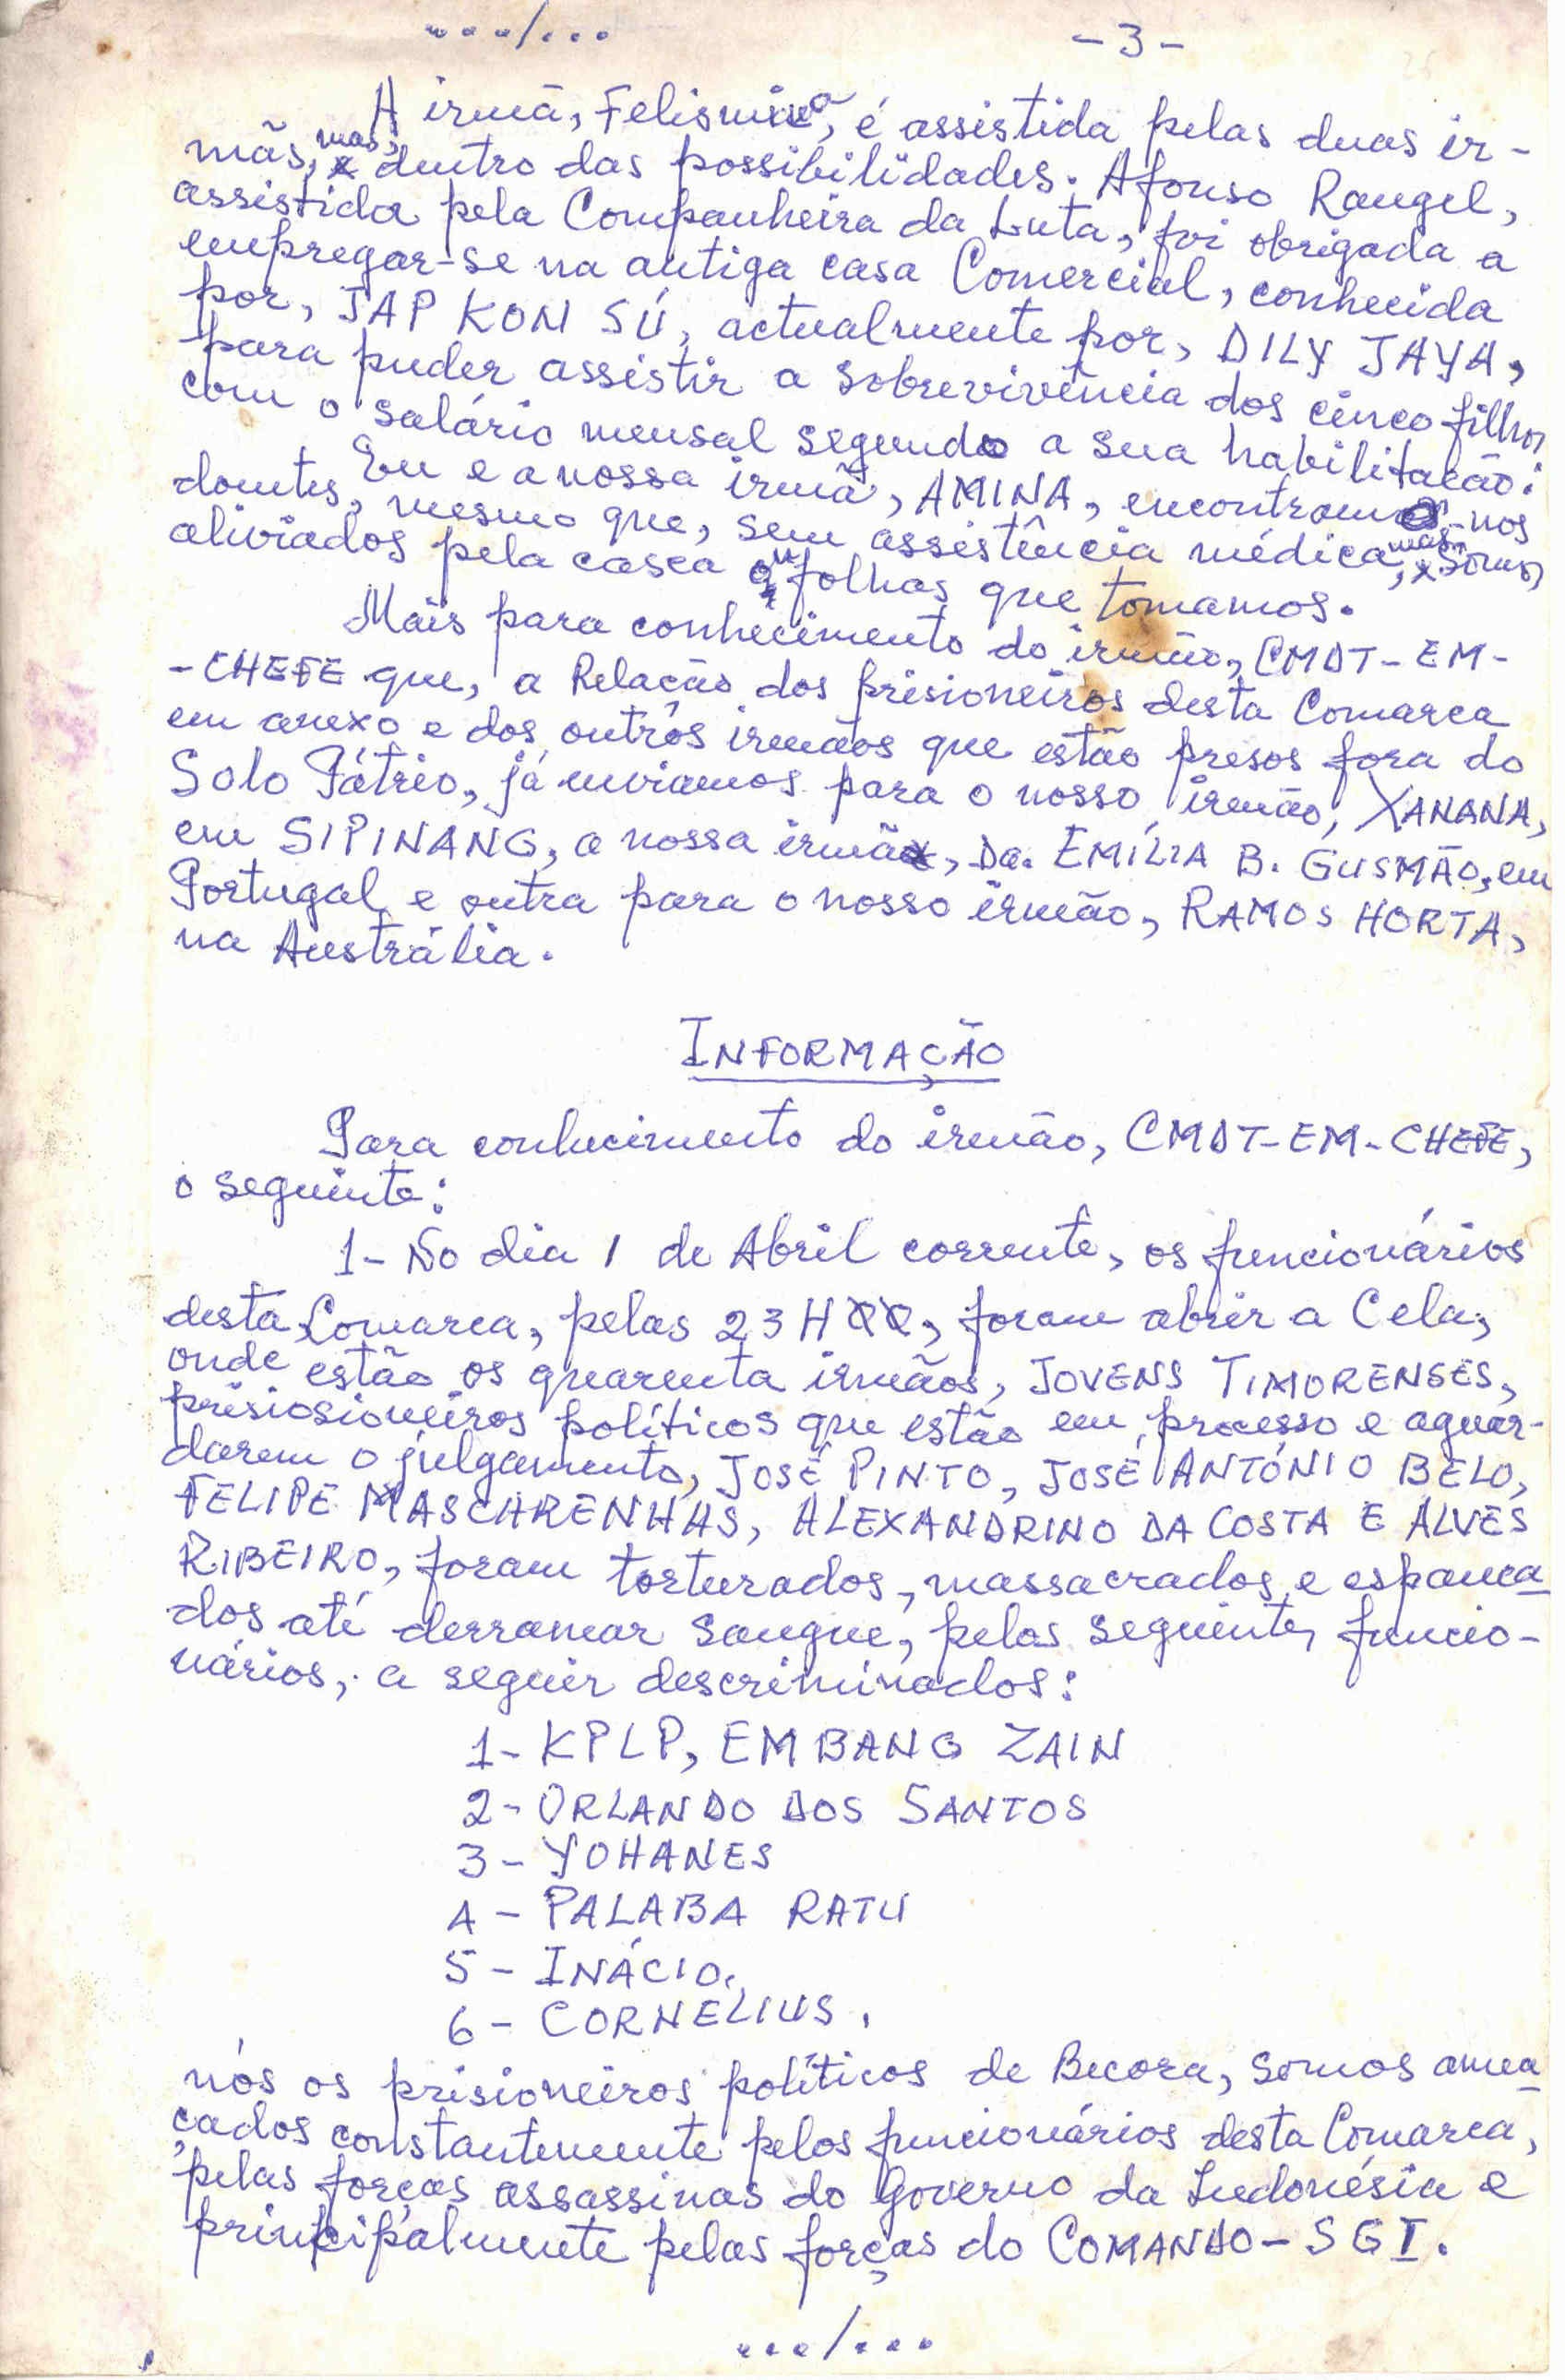 .../...
- 3 -
A irmã, Felismina, é assistida pelas duas ir-
mãs, mas, dentro das possibilidades. Afonso Rangel,
assistida pela Companheira da Luta, foi obrigada a
empregar-se na antiga casa Comercial, conhecida
por, JAP KON SÚ, actualmente por, DILY JAYA,
para puder assistir a sobrevivência dos cinco filhos
com o salário mensal segundo a sua habilitação.
Eu e a nossa irmã, AMINA, encontramos-nos
doentes, mesmo que, sem assistência médica, mas somos
aliviados pela casca ou folhas que tomamos.
Mais para conhecimento do irmão, CMDT-EM-
-CHEFE que, a Relação dos prisioneiros desta Comarca
em anexo e dos outros irmãos que estão presos fora do
Solo Pátrio, já enviamos para o nosso irmão, XANANA,
em SIPINANG, a nossa irmã, Da. EMÍLIA B. GUSMÃO, em
Portugal e outra para o nosso irmão, RAMOS HORTA,
na Austrália.
INFORMAÇÃO
Para conhecimento do irmão, CMDT-EM-CHEFE,
o seguinte:
1- No dia 1 de Abril corrente, os funcionários
desta Comarca, pelas 23H00, foram abrir a Cela,
onde estão os quarenta irmãos, JOVENS TIMORENSES,
prisiosioneiros políticos que estão em processo e aguar-
darem o julgamento, JOSÉ PINTO, JOSÉ ANTÓNIO BELO,
FELIPE MASCARENHAS, ALEXANDRINO DA COSTA E ALVES
RIBEIRO, foram torturados, massacrados e espanca
dos até derramar sangue, pelos seguintes funcio-
nários, a seguir descriminados:
1- KPLP, EMBANG ZAIN
2- ORLANDO DOS SANTOS
3- YOHANES
4- PALABA RATU
5- INÁCIO.
6- CORNÉLIUS.
nós os prisioneiros políticos de Becora, somos amea
çados constantemente pelos funcionários desta Comarca,
pelas forças assassinas do Governo da Indonésia e
principalmente pelas forças do COMANDO-SGI.
.../...